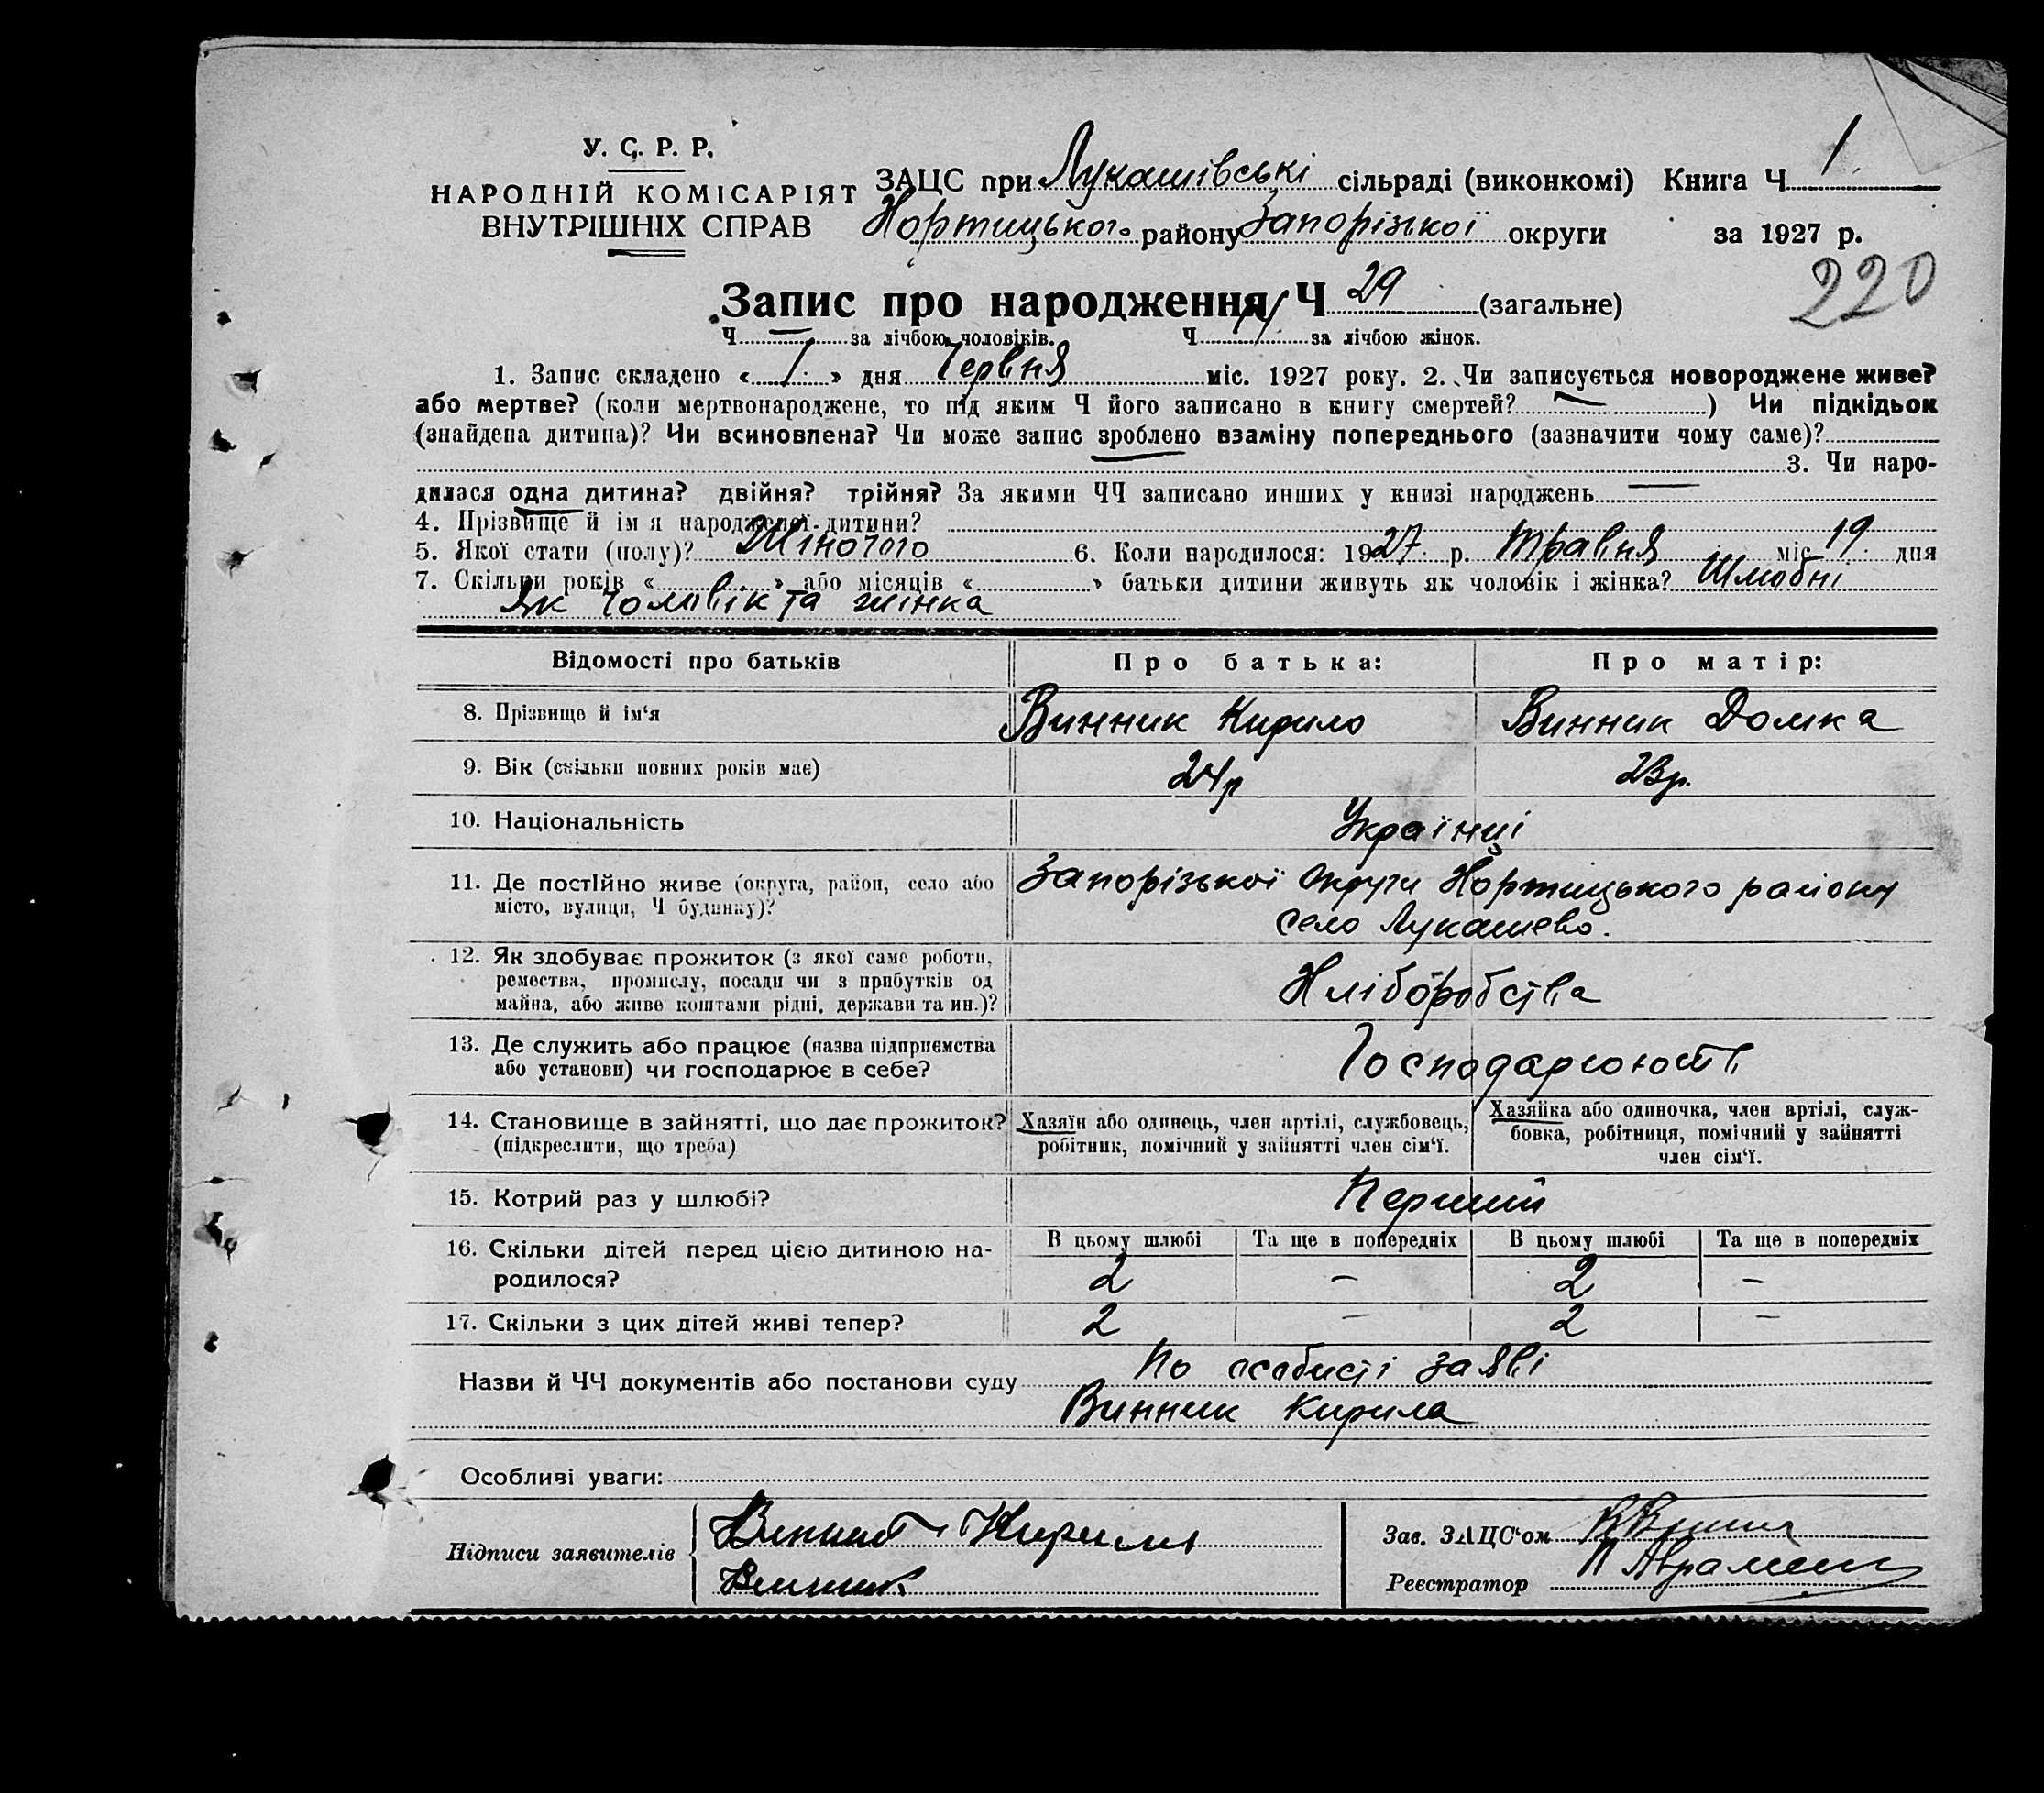 У. С. Р. Р.
НАРОДНІЙ КОМІСАРІЯТ
ВНУТРІШНІХ СПРАВ
ЗАЦС при Лукашівські сільраді (виконкомі) Книга Ч 1
Хортицького району Запорізької округи за 1927 р.
220
Запис про народження Ч 29 (загальне)
Ч — за лічбою чоловіків. Ч за лічбою жінок.
1. Запис складено « 1 » дня Червня міс. 1927 року. 2. Чи записується новороджене живе?
або мертве? (коли мертвонароджене, то під яким Ч його записано в книгу смертей? — ) Чи підкідьок
(знайдена дитина)? Чи всиновлена? Чи може запис зроблено взаміну попереднього (зазначити чому саме)?
3. Чи наро-
дилася одна дитина? двійня? трійня? За якими ЧЧ записано инших у книзі народжень —
4. Прізвище й ім'я народженої дитини?
5. Якої стати (полу)? Жіночого 6. Коли народилося: 1927 р. травня міс. 19 дня
7. Скільки років « » або місяців « » батьки дитини живуть як чоловік і жінка? Шлюбні
Як чоловік та жінка
Відомості про батьків Про батька: Про матір:
8. Прізвище й ім'я Винник Кирило Винник Домка
9. Вік (скільки повних років має) 24р 23р.
10. Національність Українці
11. Де постійно живе (округа, район, село або Запорізької Округи Хортицького району
місто, вулиця, Ч будинку)? село Лукашево.
12. Як здобуває прожиток (з якої саме роботи,
ремества, промислу, посади чи з прибутків од Хліборобства
майна, або живе коштами рідні, держави та ин.)?
13. Де служить або працює (назва підприємства Господарюють
або установи) чи господарює в себе?
14. Становище в зайнятті, що дає прожиток? Хазяїн або одинець, член артілі, службовець, Хазяйка або одиночка, член артілі, служ-
(підкреслити, що треба) робітник, помічний у зайнятті член сім'ї. бовка, робітниця, помічний у зайнятті
член сім'ї.
15. Котрий раз у шлюбі? Перший
16. Скільки дітей перед цією дитиною на- В цьому шлюбі Та ще в попередніх В цьому шлюбі Та ще в попередніх
родилося? 2 — 2 —
17. Скільки з цих дітей живі тепер? 2 — 2 —
Назви й ЧЧ документів або постанови суду По особисті заяві
Винник Кирила
Особливі уваги:
Підписи заявителів Винник Кирило
Винник
Зав. ЗАЦС'ом
Реєстратор